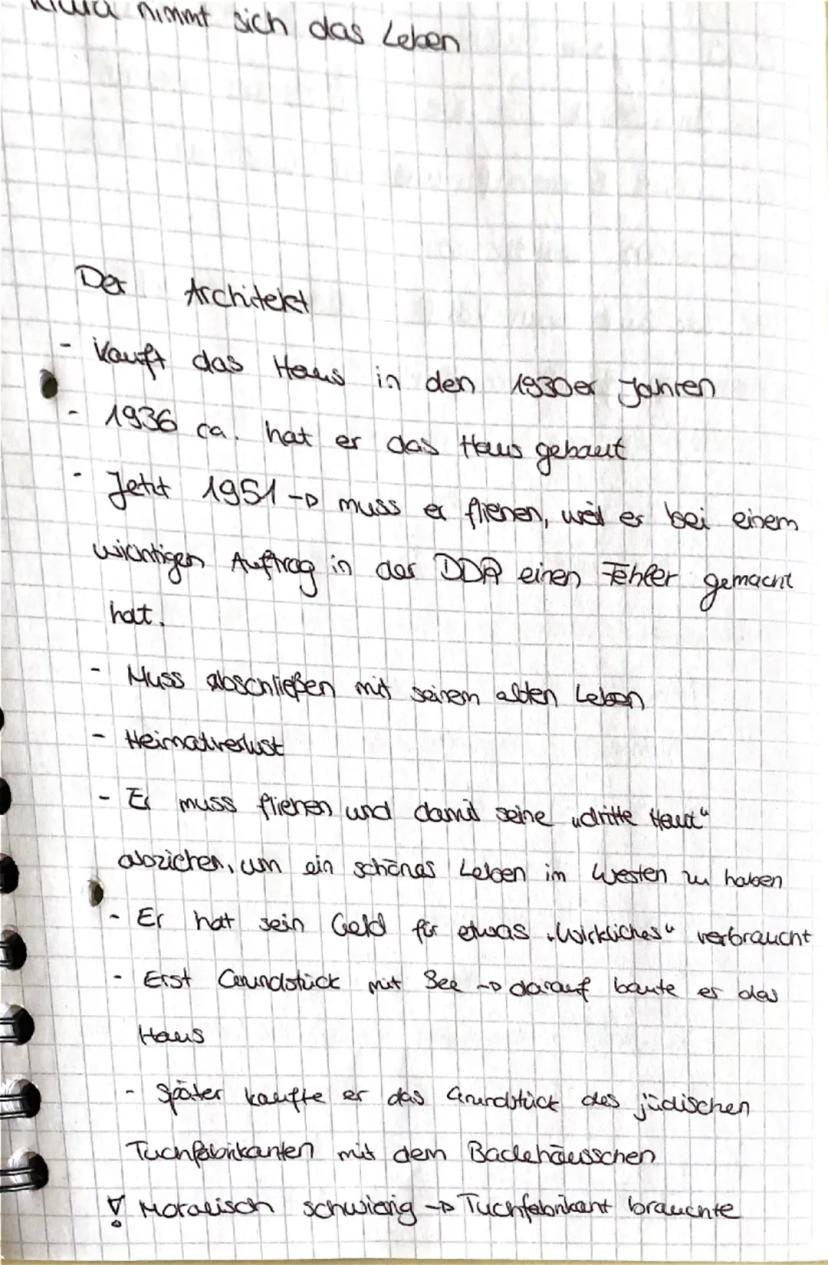 Klara nimmt sich das Leben
Der Architekt
- kauft das Haus in den 1930er Jahren
- 1936 ca. hat er das Haus gebaut
- Jetzt 1951 → muss er fliehen, weil er bei einem
wichtigen Auftrag in der DDR einen Fehler gemacht
hat.
- Muss abschließen mit seinem alten Leben
- Heimatverlust
- Er muss fliehen und damit seine „dritte Haut“
abziehen, um ein schönes Leben im Westen zu haben
- Er hat sein Geld für etwas „Wirkliches“ verbraucht
- Erst Grundstück mit See → darauf baute er das
Haus
- Später kaufte er das Grundstück des jüdischen
Tuchfabrikanten mit dem Badehäusschen
! Moralisch schwierig → Tuchfabrikant brauchte